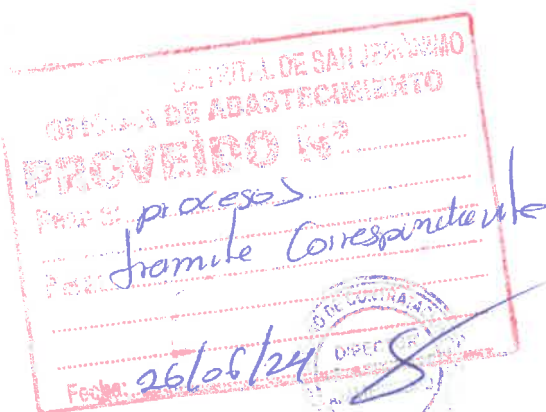 DISTRITAL DE SAN JERÓNIMO
OFICINA DE ABASTECIMIENTO
PROVEÍDO Nº
Pase a: procesos
Para: tramite Correspondiente
Fecha: 26/06/24